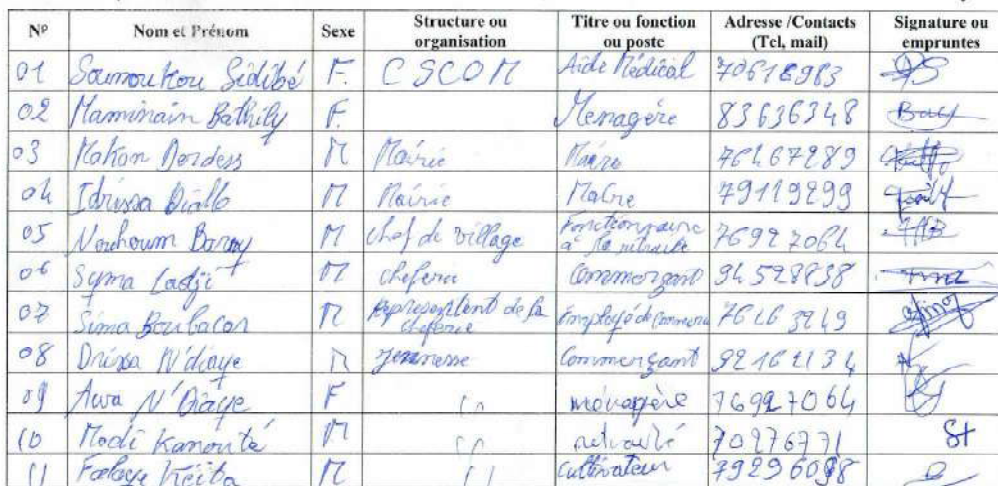 N° Nom et Prénom Sexe Structure ou organisation Titre ou fonction ou poste Adresse /Contacts (Tel, mail) Signature ou empruntes
01 Soumoukou Sidibé F. CSCOM Aide Médical 70618983
02 Maminain Bathily F. Menagère 83636348
03 Makan M Mairie Maire 76467289
04 Idrissa Diallo M Mairie Maire 79119299
05 Nouhoum Barry M chef de village Fonctionnaire à la retraite 76927064
06 Syma Ladji M cheferie Commerçant 94528838
07 Sima Boubacar M Représentent de la cheferie Employé de commerce
08 Drissa N'diaye M Jeunesse Commerçant 92162134
09 Awa N'Diaye F \" ménagère 76927064
10 Modi Kanouté M \" retraité 70276771 St
11 Keita M \" Cultivateur 79296098